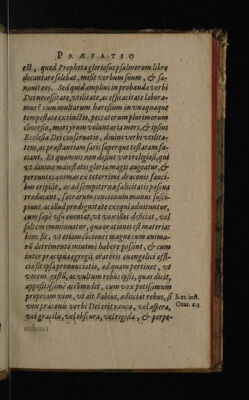 PRÆFATIO
est, quod Propheta gloriosus psalmorum libro
decantare solebat, misit verbum suum, & sa-
nauit eos. Sed quid amplius in probanda verbi
Dei necessitate, vtilitate, ac efficacitate labora-
mus? cum multarum hæresium in vnaquaque
tempestate extinctio, peccatorum plurimorum
conuersio, martyrum voluntaria mors, & ipsius
Ecclesiæ Dei conseruatio, diuini verbi vtilita-
tem, ac præstantiam satis superque testatam fa-
ciant. Et quamuis non desint viri religiosi, qui
vt diuinæ maiestatis gloria magis augeatur, &
pereuntes animas ex teterrimi draconis fauci-
bus eripiãt, ac ad sempiternæ fælicitatis pascua
traducant, sacrarum concionum munus susci-
piunt, ac illud pro dignitate exequi adnituntur,
cum sæpè vsu eueniat, vt vox illos deficiat, vel
saltem imminuatur, qua orationis est materia:
hinc fit, vt etiam cõciones magno cum anima-
rũ detrimento minimè habere possint, & cum
inter præcipua egregij oratoris euangelici offi-
cia sit ipsa pronunciatio, ad quam pertinet, vt
vocem, gestũ, ac vultum rebus ipsis, quas dicit,
appositissimè accomodet, cum vox potissimum
propriam vim, vt ait Fabius, adijciat rebus, si
vox præconis verbi Dei erit rauca, vel aspera,
vel gracilis, vel obscura, vel rigida, & perpe-
li. 11. inst.
Orat. c. 3